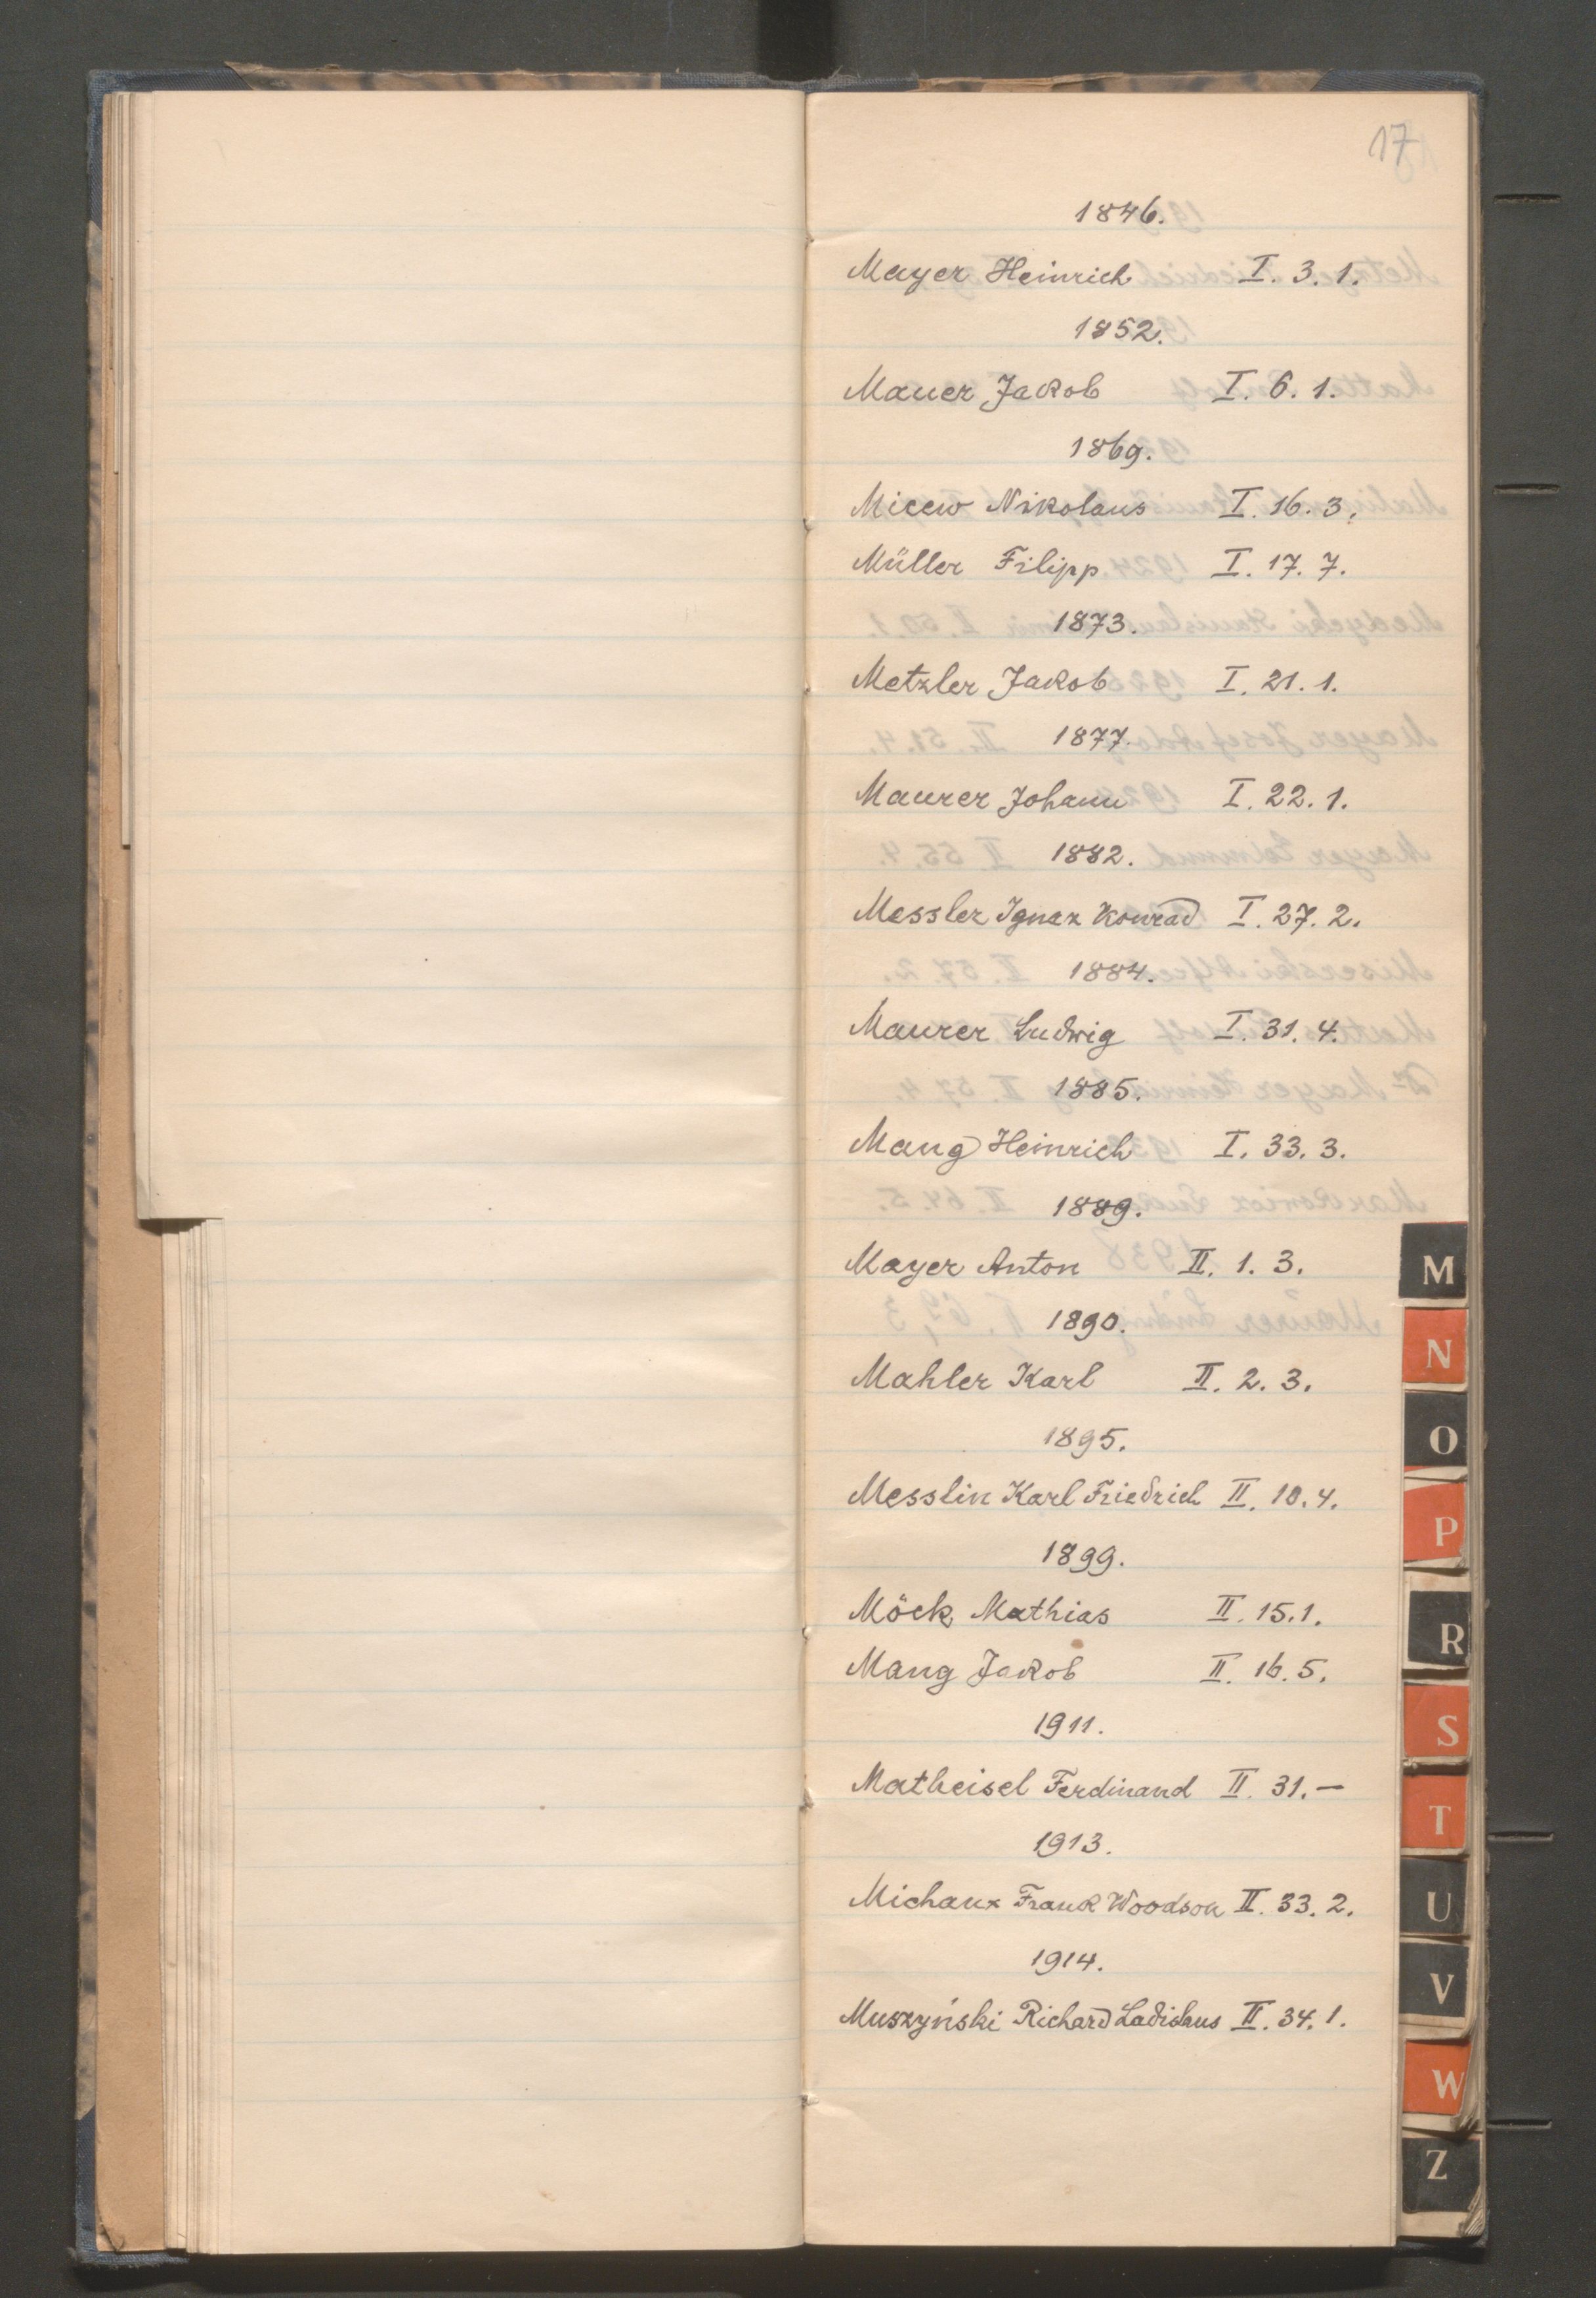 17
1846.
Mayer Heinrich I. 3. 1.
1852.
Mauer Jakob I. 6. 1.
1869.
Micew Nikolaus I. 16. 3.
Müller Filipp I. 17. 7.
1873.
Metzler Jakob I. 21. 1.
1877.
Maurer Johann I. 22. 1.
1882.
Messler Ignaz Konrad I. 27. 2.
1884.
Maurer Ludwig I. 31. 4.
1885.
Mang Heinrich I. 33. 3.
1889.
Mayer Anton II. 1. 3.
1890.
Mahler Karl II. 2. 3.
1895.
Messlin Karl Friedrich II. 10. 4.
1899.
Möck Mathias II. 15. 1.
Mang Jakob II. 16. 5.
1911.
Matheisel Ferdinand II. 31. –
1913.
Michaux Frank Woodson II. 33. 2.
1914.
Muszyński Richard Ladislaus II. 34. 1.
M
N
O
P
R
S
T
U
V
W
Z